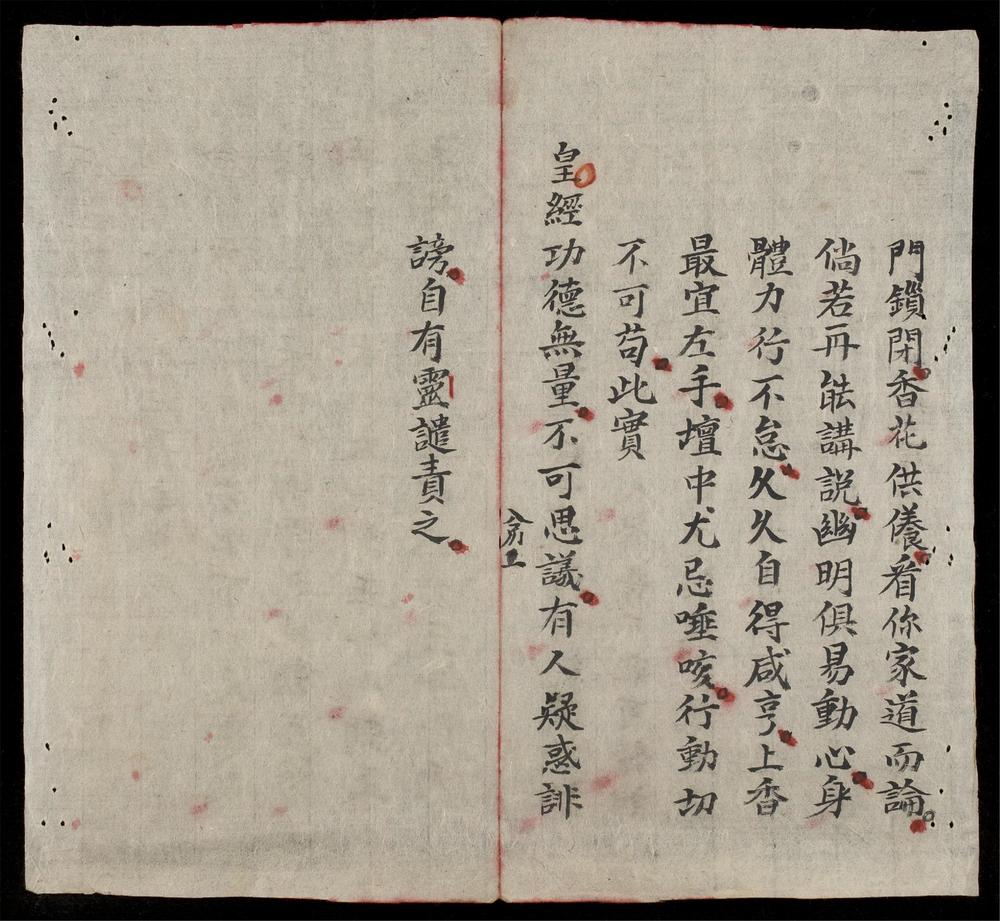 門鎖閉香花供養看你家道而論
倘若再能講說幽明俱易動心身
體力行不怠久久自得咸亨上香
最宜左手壇中尤忌唾咳行動切
不可苟此實
皇經功德無量不可思議有人疑惑誹
謗自有靈譴責之